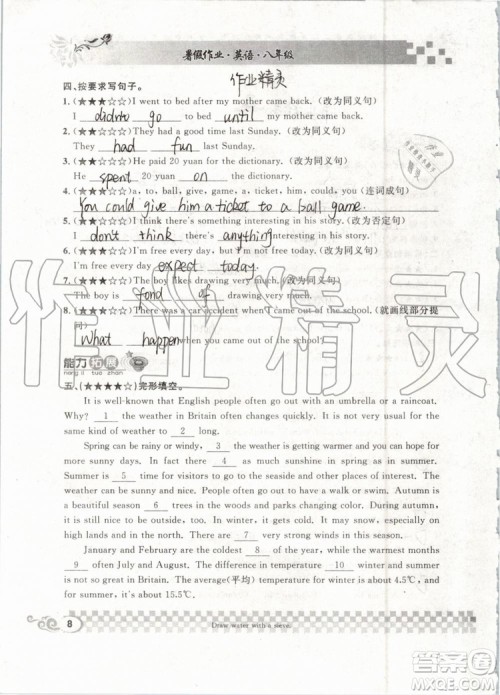 暑假作业·英语·八年级
四、按要求写句子。
作业精灵
1.(★★★☆☆)I went to bed after my mother came back.(改为同义句)
I didn't go to bed until my mother came back.
2.(★★☆☆☆)They had a good time last Sunday.(改为同义句)
They had fun last Sunday.
3.(★★☆☆☆)He paid 20 yuan for the dictionary.(改为同义句)
He spent 20 yuan on the dictionary.
4.(★★★☆☆)a, to, ball, give, game, a, ticket, him, could, you(连词成句)
You could give him a ticket to a ball game.
5.(★★☆☆☆)I think there's something interesting in his story.(改为否定句)
I don't think there's anything interesting in his story.
6.(★★☆☆☆)I'm free every day, but I'm not free today.(改为同义句)
I'm free every day expect today.
7.(★★★☆☆)The boy likes drawing very much.(改为同义句)
The boy is fond of drawing very much.
8.(★★★☆☆)There was a car accident when I came out of the school.(就画线部分提
问)
What happen when you came out of the school?
能力拓展
neng li tuo zhan
五、(★★★★☆)完形填空。
It is well-known that English people often go out with an umbrella or a raincoat.
Why? 1 the weather in Britain often changes quickly. But you will not find the
same kind of weather for too 2 .
Spring can be rainy or windy, 3 the weather is getting warmer and you can hope
for more sunny days. In fact, there is 4 as much sunshine in spring as in summer.
Summer is 5 time for visitors to go to the seaside and other places of interest. The
weather can be sunny and hot. People often have a walk or swim. Autumn is a beautiful
season 6 trees in the woods and parks changing color. During autumn, it
will still be nice to take outdoor activities. In winter, it will often snow, especially on
high lands and mountains. There are 7 and very short days.
January and February are the coldest 8 of the year, while the warmest months
9 often July and August. The temperature 10 between winter and summer
is not so great in Britain. The average(平均) temperature for winter is about 4.5℃, and
for summer, it is about 15.5℃.
8
Draw water with a sieve.
作业精灵
答案圈
MXQE.COM